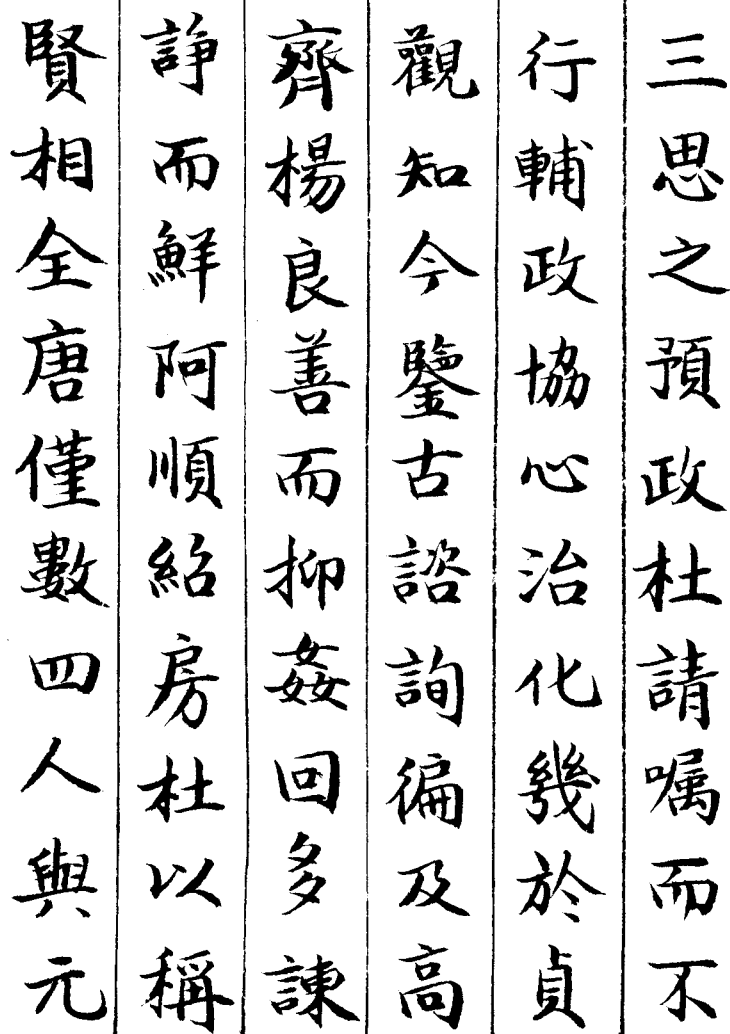 三思之預政杜請嘱而不
行輔政協心治化幾於貞
觀知今鑒古諮詢徧及高
齊楊良善而抑姦回多諫
諍而鮮阿順紹房杜以稱
賢相全唐僅數四人與元